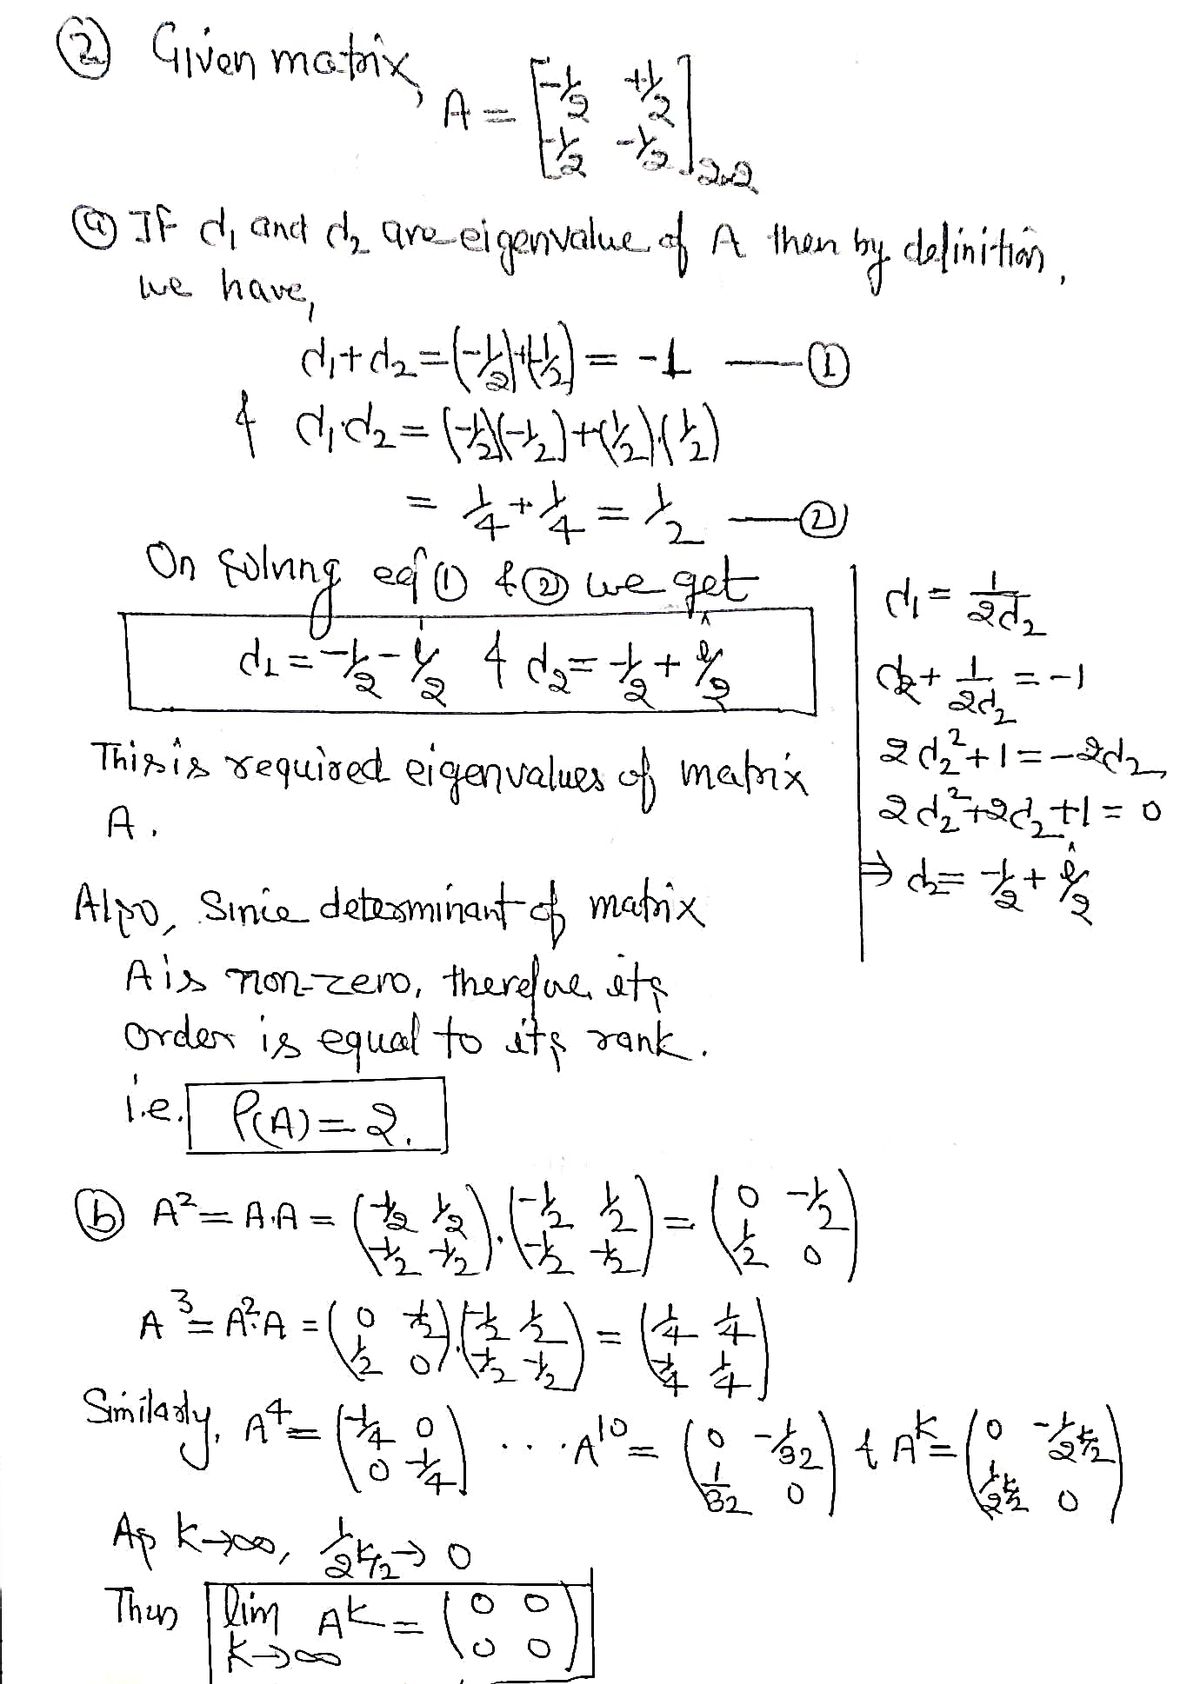 ② Given matrix, A = [-1/2 +1/2; -1/2 -1/2]2x2
ⓐ If d₁ and d₂ are eigenvalue of A then by definition,
we have,
d₁+d₂ = (-1/2)+(-1/2) = -1 —①
& d₁·d₂ = (-1/2)(-1/2)+(1/2)·(1/2)
= 1/4 + 1/4 = 1/2 —②
On solving eqⁿ ① & ② we get
d₁ = -1/2 - i/2 & d₂ = -1/2 + i/2
This is required eigenvalues of matrix
A.
d₁ = 1/2d₂
d₂ + 1/2d₂ = -1
2d₂²+1 = -2d₂
2d₂²+2d₂+1 = 0
⇒ d₂ = -1/2 + i/2
Also, Since determinant of matrix
A is non-zero, therefore its
order is equal to its rank.
i.e. ρ(A) = 2.
ⓑ A² = A·A = (-1/2 1/2; -1/2 -1/2)·(-1/2 1/2; -1/2 -1/2) = (0 -1/2; 1/2 0)
A³ = A²·A = (0 -1/2; 1/2 0)(-1/2 1/2; -1/2 -1/2) = (1/4 1/4; -1/4 1/4)
Similarly, A⁴ = (-1/4 0; 0 -1/4) ... A¹⁰ = (0 -1/32; 1/32 0) & Aᵏ = (0 -1/2^(k/2); 1/2^(k/2) 0)
As k→∞, 1/2^(k/2) → 0
Then lim k→∞ Aᵏ = (0 0; 0 0)